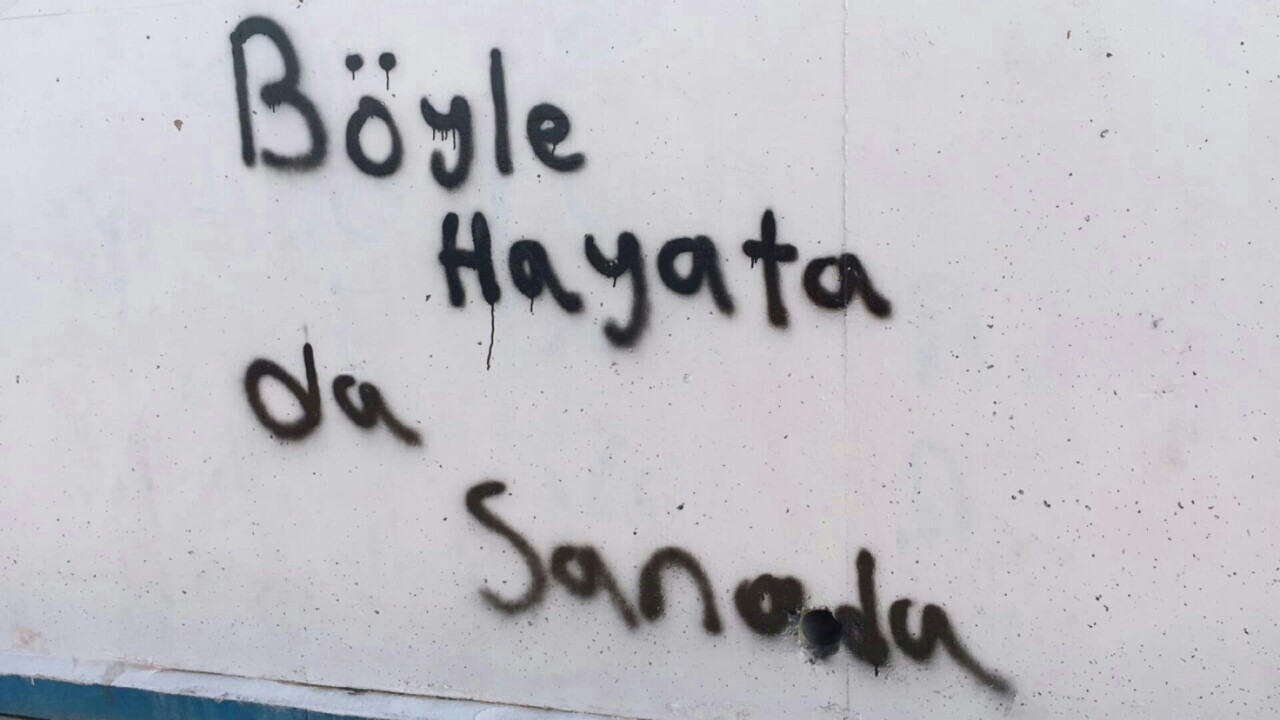 Böyle
Hayata
da
Sanada